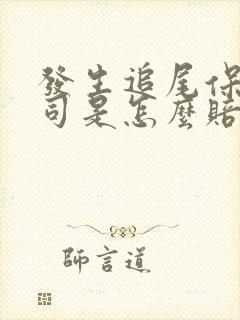 發生追尾保
司是怎麼賠
師言道